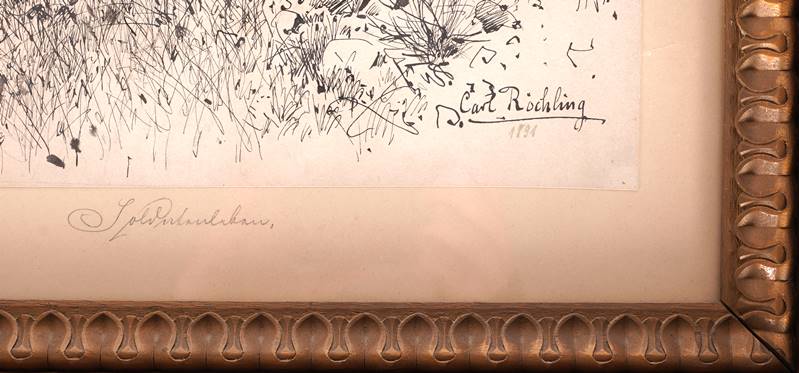 Carl Röchling
1891
Soldatenleben.